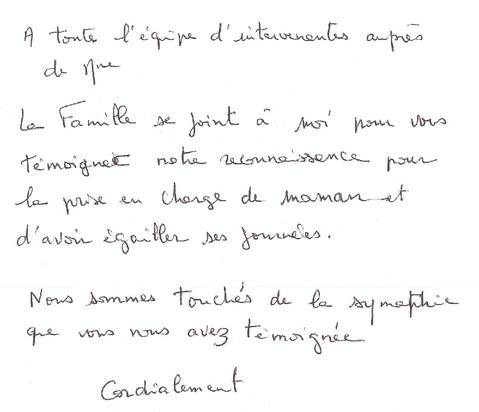 A toute l'équipe d'intervenantes auprès
de Mme
La Famille se joint à moi pour vous
témoigner notre reconnaissence pour
la prise en charge de maman et
d'avoir égailler ses journées.
Nous sommes touchés de la symaphie
que vous nous avez témoignée
Cordialement